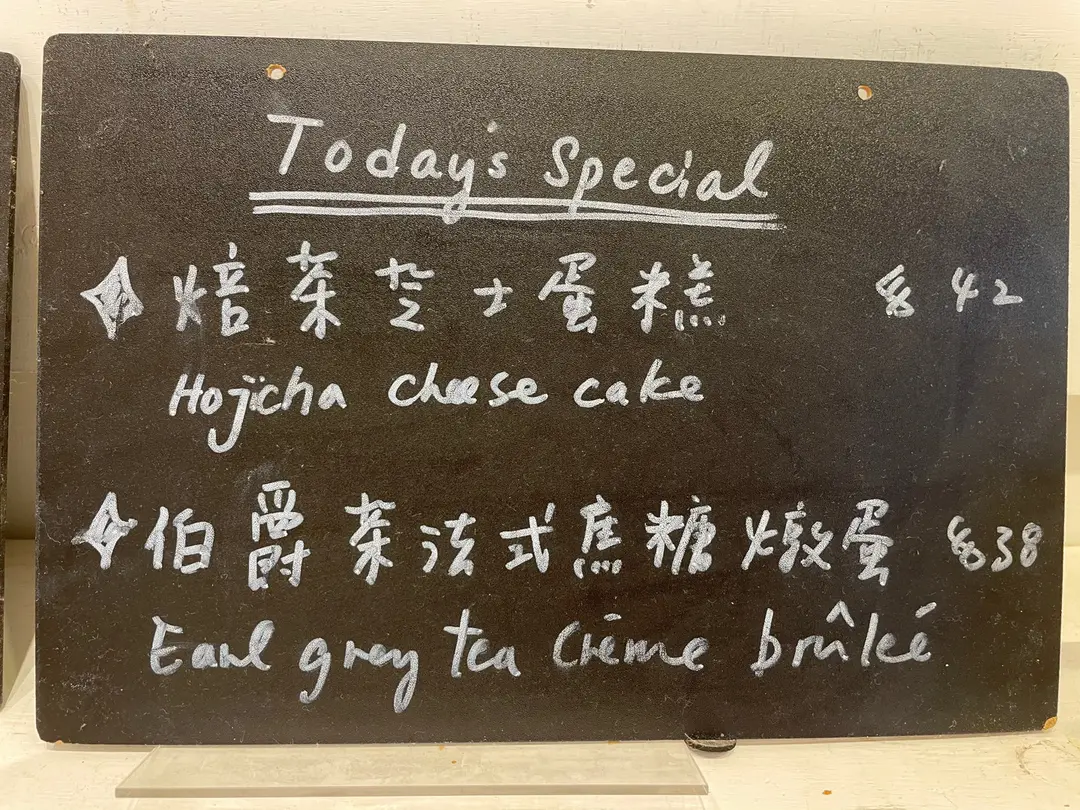 Today's Special
焙茶芝士蛋糕 $ 42
Hojicha cheese cake
伯爵茶法式焦糖燉蛋 $38
Earl grey tea Crème brûlée